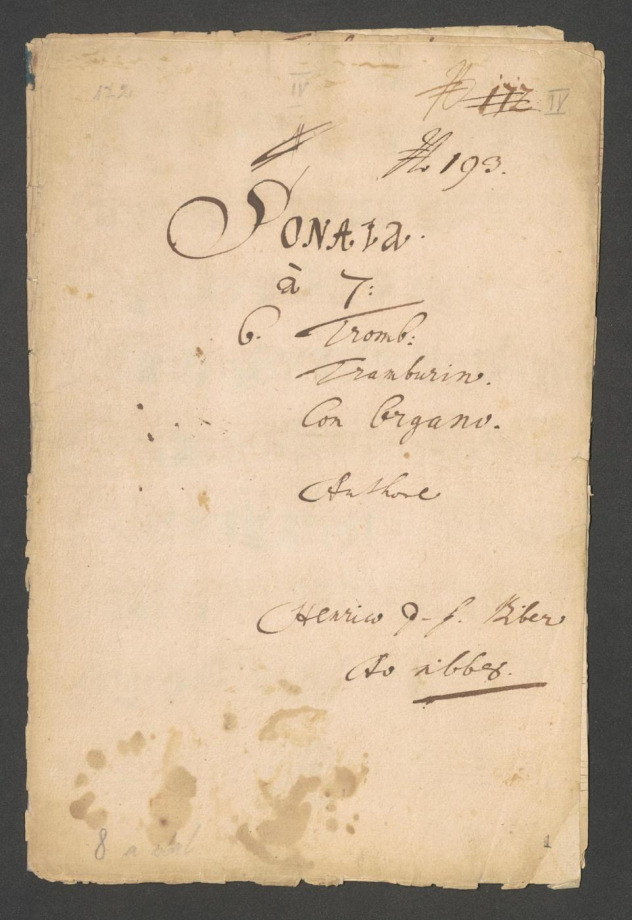 122
IV
No 172 IV
No 193.
SONATA.
à 7:
6. Tromb:
Tamburin.
Con Organo.
Authore
Henrico J. f. Biber
Ao 1668.
8
1